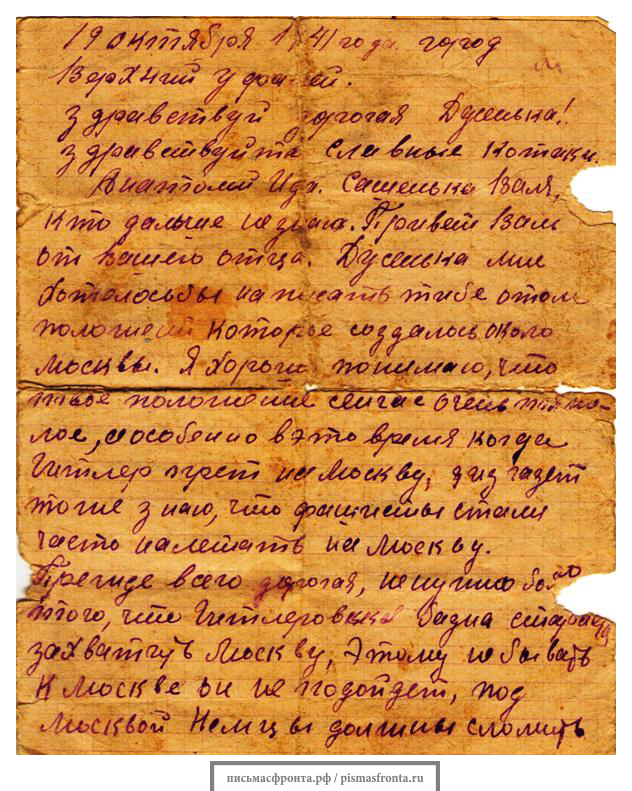 19 октября 1941 года. город
Верхний удо ей.
здравствуй дорогая Дусенька!
здравствуйте славные котики.
Анатолий Ида. Сашенька Валя,
кто дальше не знаю. Привет Вам
от вашего отца. Дусенька мне
хотелось бы написать тибе о том
положении которое создалось около
Москвы. Я хорошо понимаю, что
твое положение сейчас очень тяже-
лое, особенно в это время когда
Гитлер прет на Москву, я из газет
тоже знаю, что фашисты стали
часто налетать на Москву.
Прежде всего дорогая, не нужно бо
того, что Гитлеровская банда старается
захватить Москву, Этому не бывать
К Москве он не подойдет, под
Москвой Немцы должны сломить
письмасфронта.рф / pismasfronta.ru